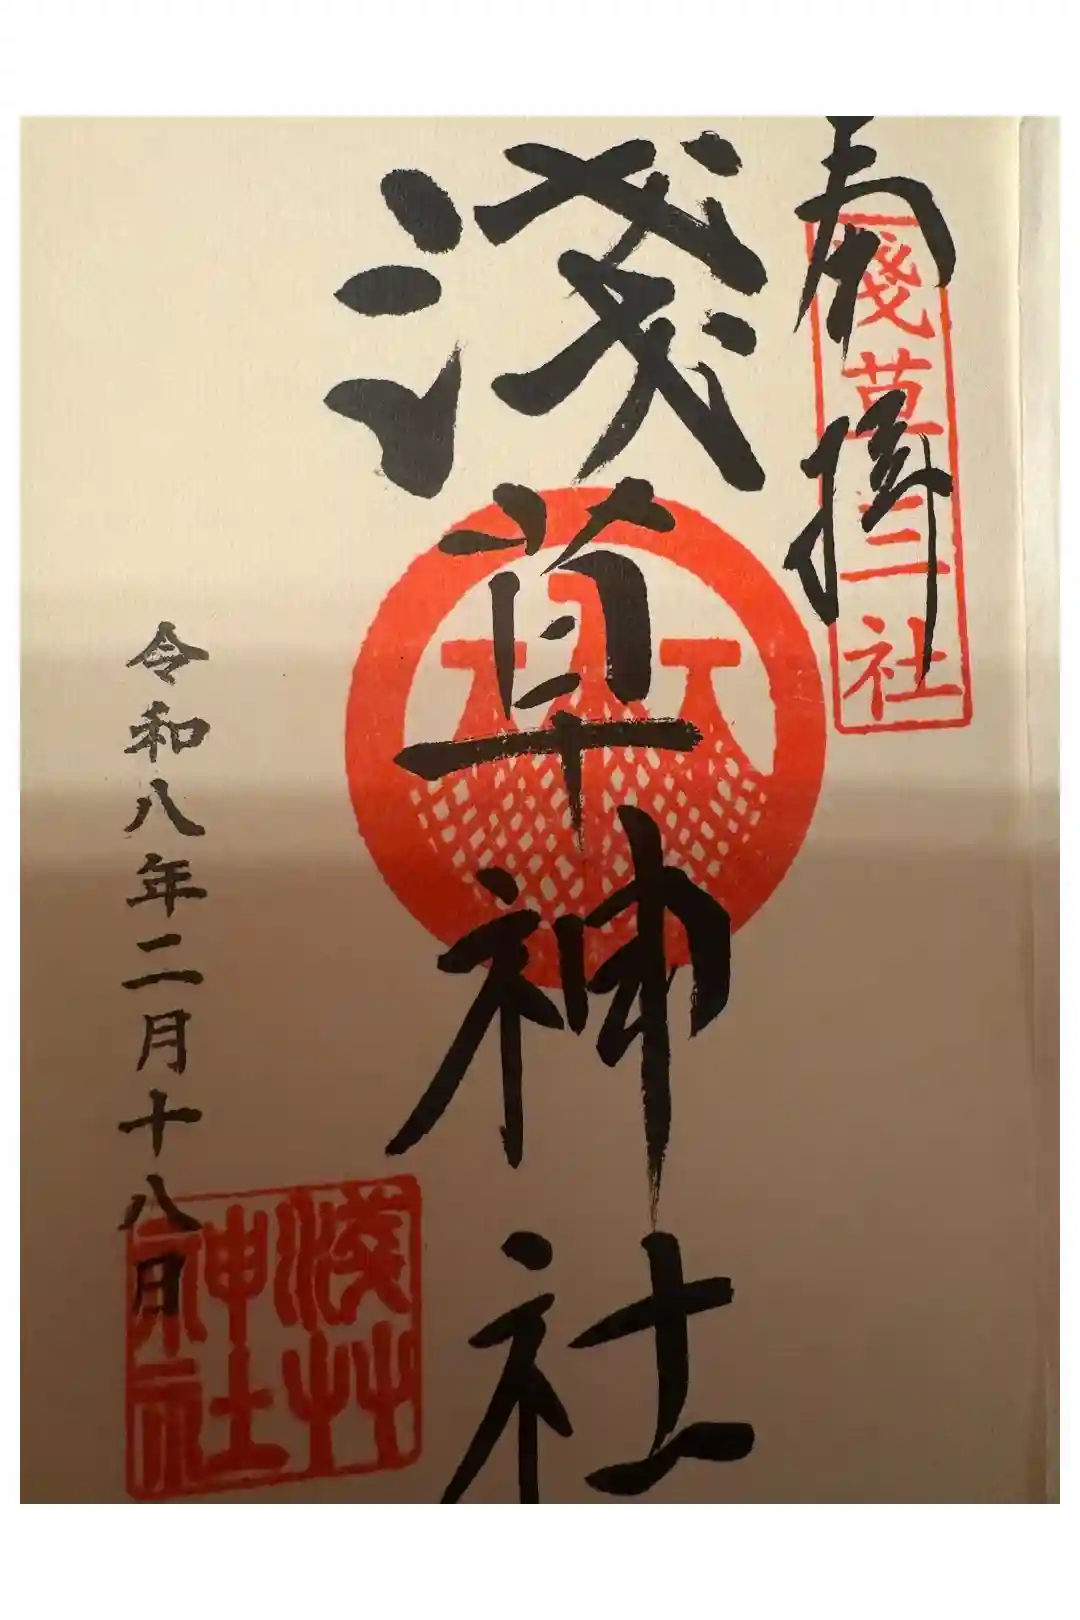 奉拝
淺草三社
淺草神社
令和八年二月十八日
淺艸
神社